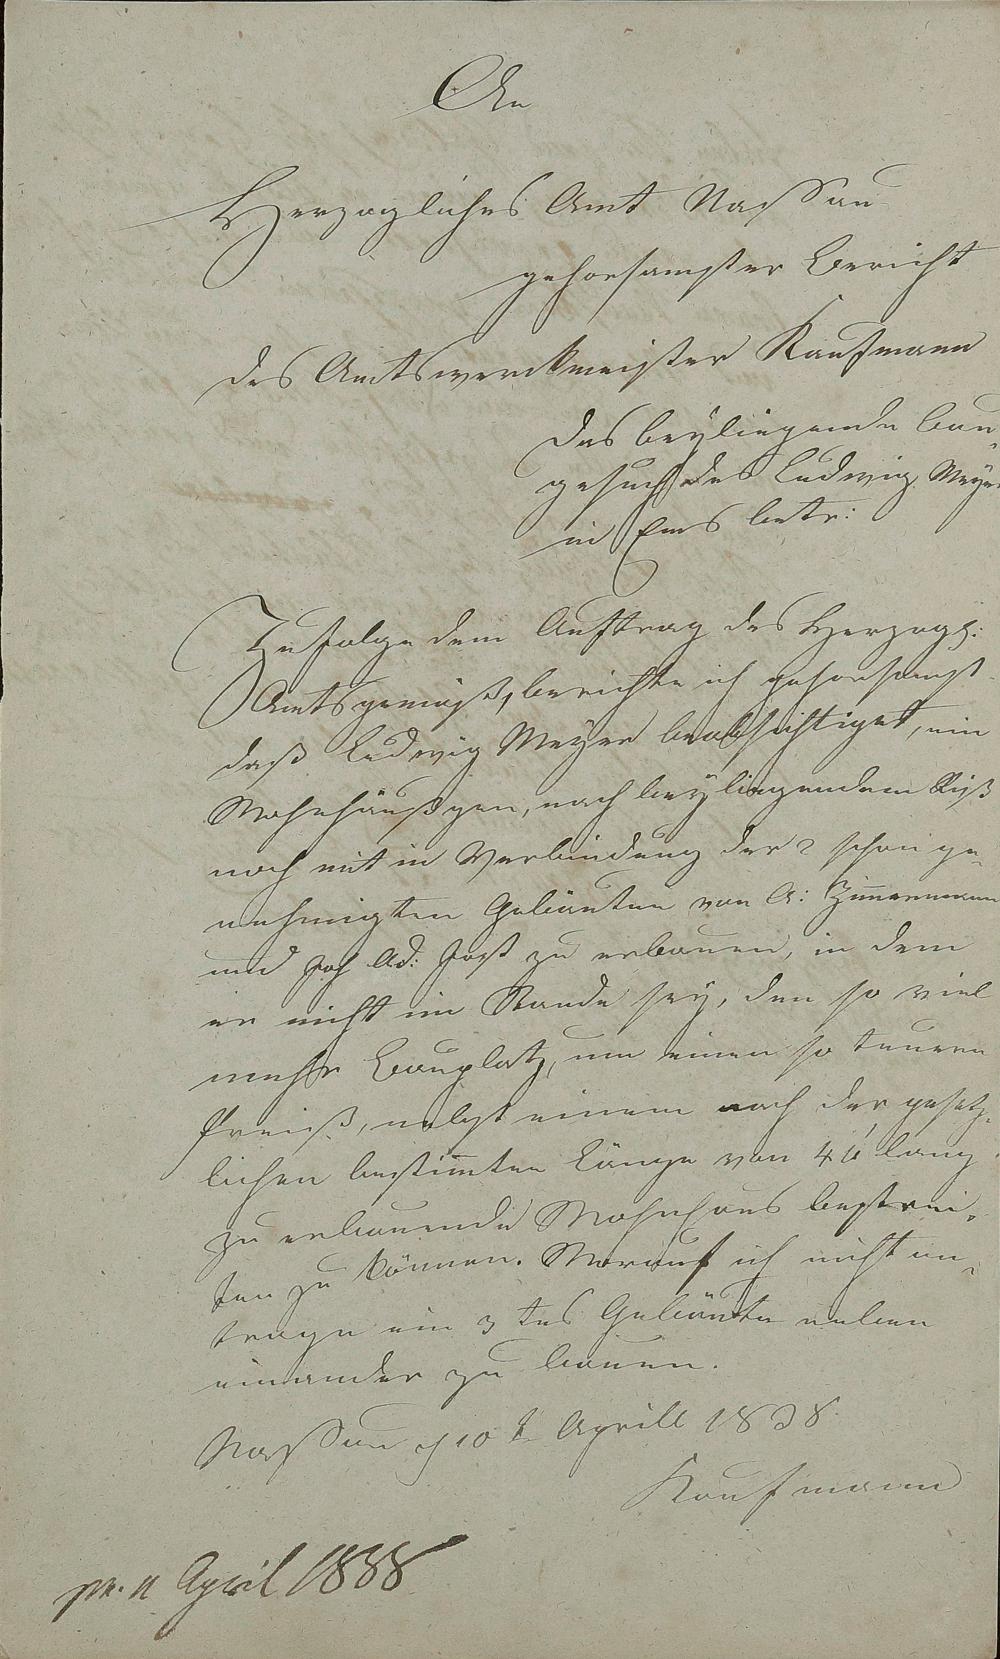 An
Herzogliches Amt Nassau
gehorsamster Bericht
des Amtswerckmeister Kaufmann
das beyliegende Bau-
gesuch des Ludwig Meyer
in Ems betr:
Zufolge dem Auftrag des Herzogl:
Amts gemäß, berichte ich gehorsamst
daß Ludwig Meyer beabsichtiget, ein
Wohnhäußgen, nach beyliegendem Riß
noch mit in Verbindung der 2 schon ge-
nehmigten Gebäuten von A: Zimmermann
und Joh Ad: Jost zu erbauen, in dem
er nicht im Stande sey, den so viel
mehr Bauplatz, um einen so teuren
Preiß, nebst einem nach der gesetz-
lichen bestimten Länge von 40' lang
zu erbauende Wohnhaus bestrei-
ten zu können. Worauf ich nicht an-
trage ein 3tes Gebäute neben
einander zu bauen.
Nassau d 10t Aprill 1838
Kaufmann
pr. 11 April 1838